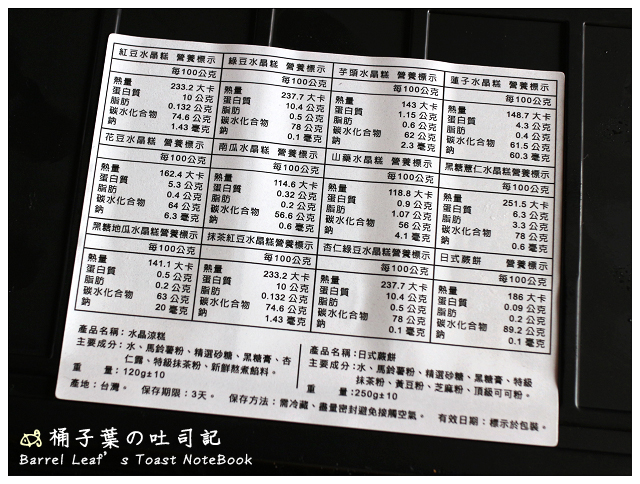 紅豆水晶糕 營養標示
每100公克
熱量 233.2 大卡
蛋白質 10 公克
脂肪 0.132 公克
碳水化合物 74.6 公克
鈉 1.43 毫克
綠豆水晶糕 營養標示
每100公克
熱量 237.7 大卡
蛋白質 10.4 公克
脂肪 0.5 公克
碳水化合物 78 公克
鈉 0.1 毫克
芋頭水晶糕 營養標示
每100公克
熱量 143 大卡
蛋白質 1.15 公克
脂肪 0.6 公克
碳水化合物 62 公克
鈉 2.3 毫克
蓮子水晶糕 營養標示
每100公克
熱量 148.7 大卡
蛋白質 4.3 公克
脂肪 0.4 公克
碳水化合物 61.5 公克
鈉 60.3 毫克
花豆水晶糕 營養標示
每100公克
熱量 162.4 大卡
蛋白質 5.3 公克
脂肪 0.4 公克
碳水化合物 64 公克
鈉 6.3 毫克
南瓜水晶糕 營養標示
每100公克
熱量 114.6 大卡
蛋白質 0.32 公克
脂肪 0.2 公克
碳水化合物 56.6 公克
鈉 0.6 毫克
山藥水晶糕 營養標示
每100公克
熱量 118.8 大卡
蛋白質 0.9 公克
脂肪 1.07 公克
碳水化合物 56 公克
鈉 4.1 毫克
黑糖薏仁水晶糕營養標示
每100公克
熱量 251.5 大卡
蛋白質 6.3 公克
脂肪 3.3 公克
碳水化合物 78 公克
鈉 0.6 毫克
黑糖地瓜水晶糕營養標示
每100公克
熱量 141.1 大卡
蛋白質 0.5 公克
脂肪 0.2 公克
碳水化合物 63 公克
鈉 20 毫克
抹茶紅豆水晶糕營養標示
每100公克
熱量 233.2 大卡
蛋白質 10 公克
脂肪 0.132 公克
碳水化合物 74.6 公克
鈉 1.43 毫克
杏仁綠豆水晶糕營養標示
每100公克
熱量 237.7 大卡
蛋白質 10.4 公克
脂肪 0.5 公克
碳水化合物 78 公克
鈉 0.1 毫克
日式蕨餅 營養標示
每100公克
熱量 186 大卡
蛋白質 0.09 公克
脂肪 0.2 公克
碳水化合物 89.2 公克
鈉 0.1 毫克
產品名稱：水晶涼糕
主要成分：水、馬鈴薯粉、精選砂糖、黑糖膏、杏
仁露、特級抹茶粉、新鮮熬煮餡料。
重 量：120g±10
產品名稱：日式蕨餅
主要成分：水、馬鈴薯粉、精選砂糖、黑糖膏、特級
抹茶粉、黃豆粉、芝麻粉、頂級可可粉。
重 量：250g±10
產地：台灣。 保存期限：3天。 保存方法：需冷藏、盡量密封避免接觸空氣。 有效日期：標示於包裝。
桶子葉の吐司記
Barrel Leaf's Toast NoteBook